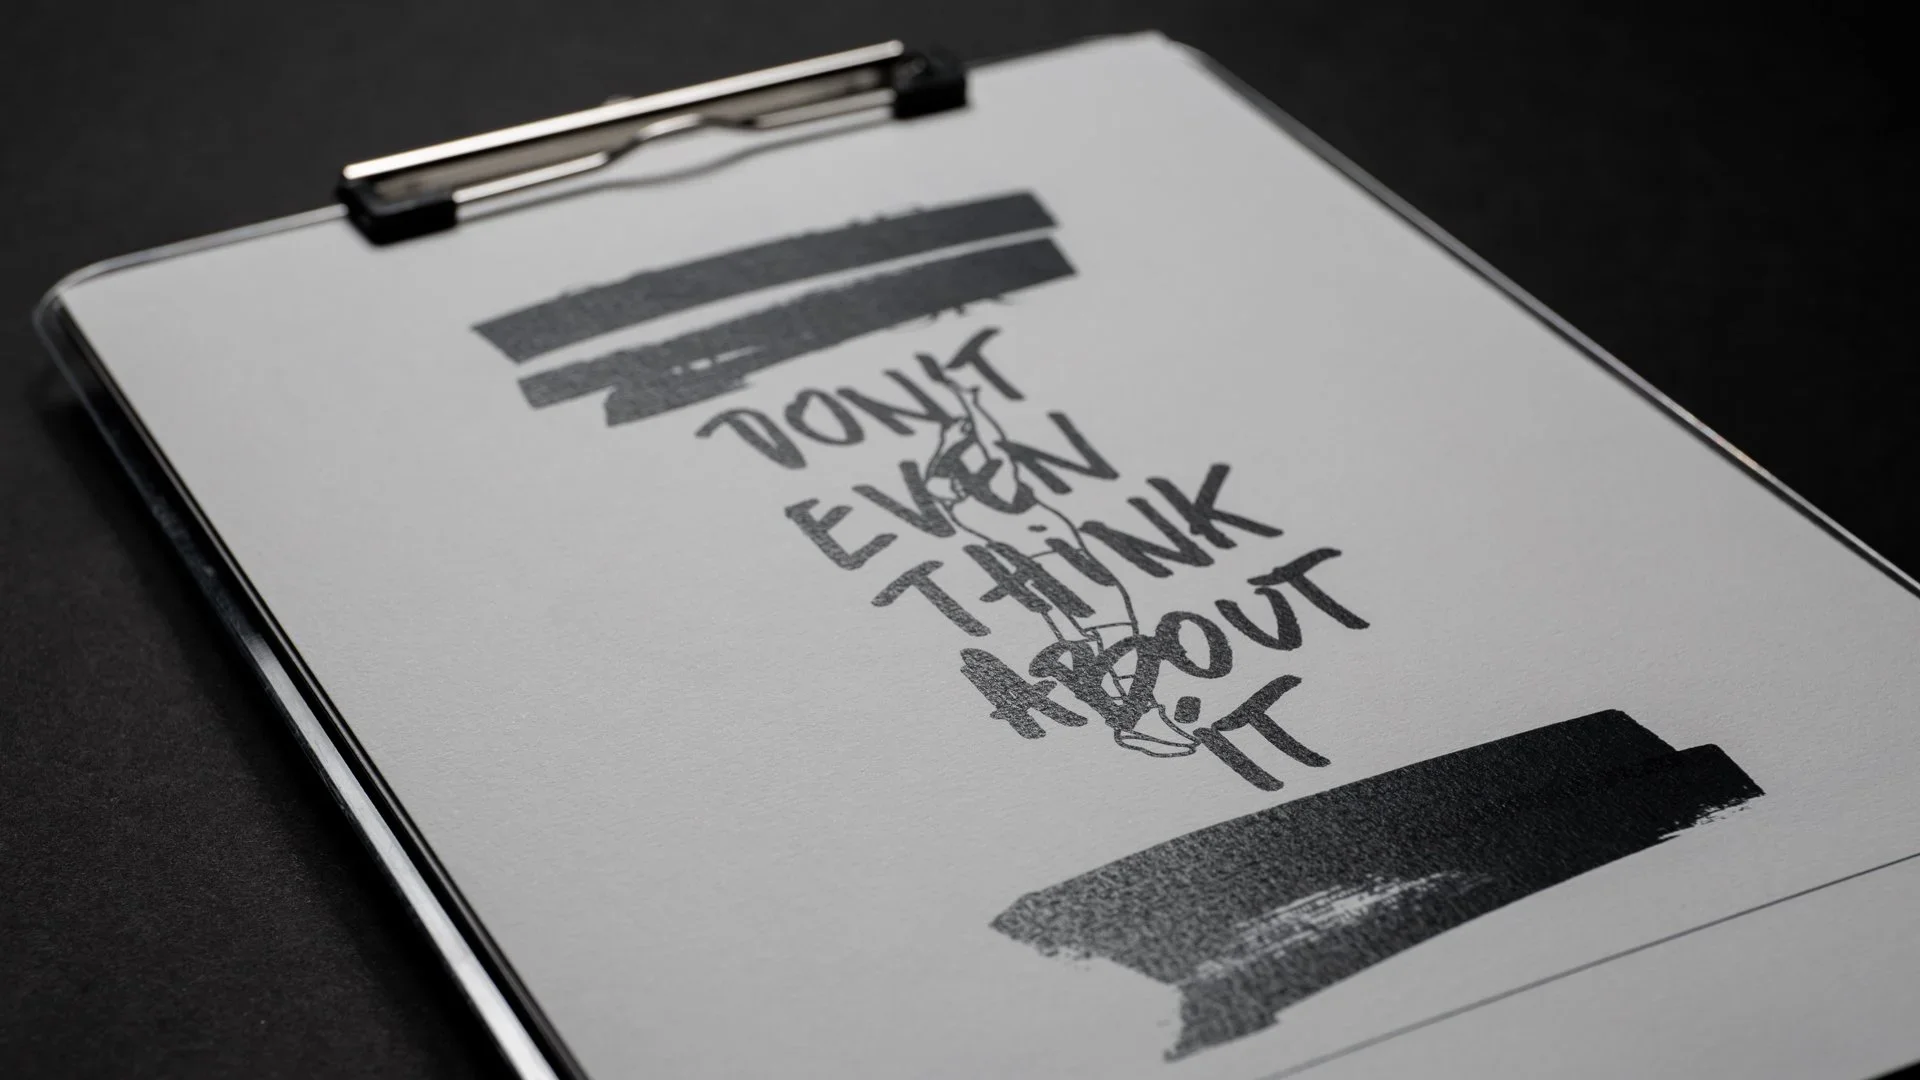 DON'T
EVEN
THiNK
ABOUT
iT